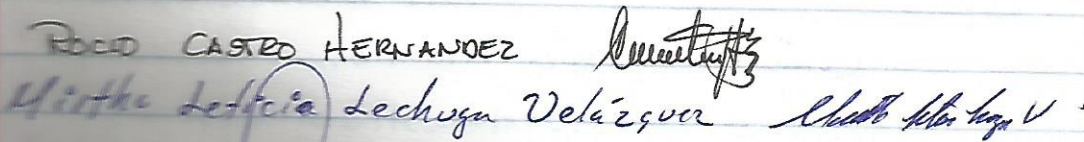 ROCIO CASTRO HERNANDEZ
Mirtha Leticia Lechuga Velázquez